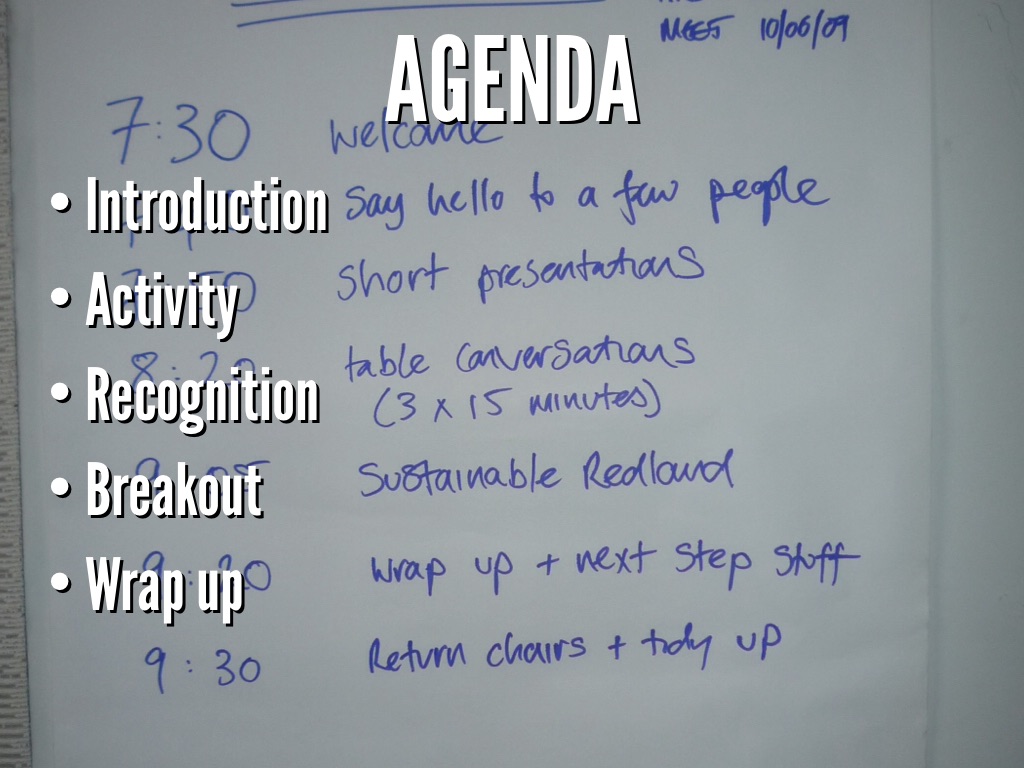 MEET 10/06/09
AGENDA
7:30 welcome
• Introduction
say hello to a few people
:50 short presentations
• Activity
8:20 table conversations
(3 x 15 minutes)
• Recognition
9:05 Sustainable Redland
• Breakout
9:20 wrap up + next step stuff
• Wrap up
9:30 Return chairs + tidy up